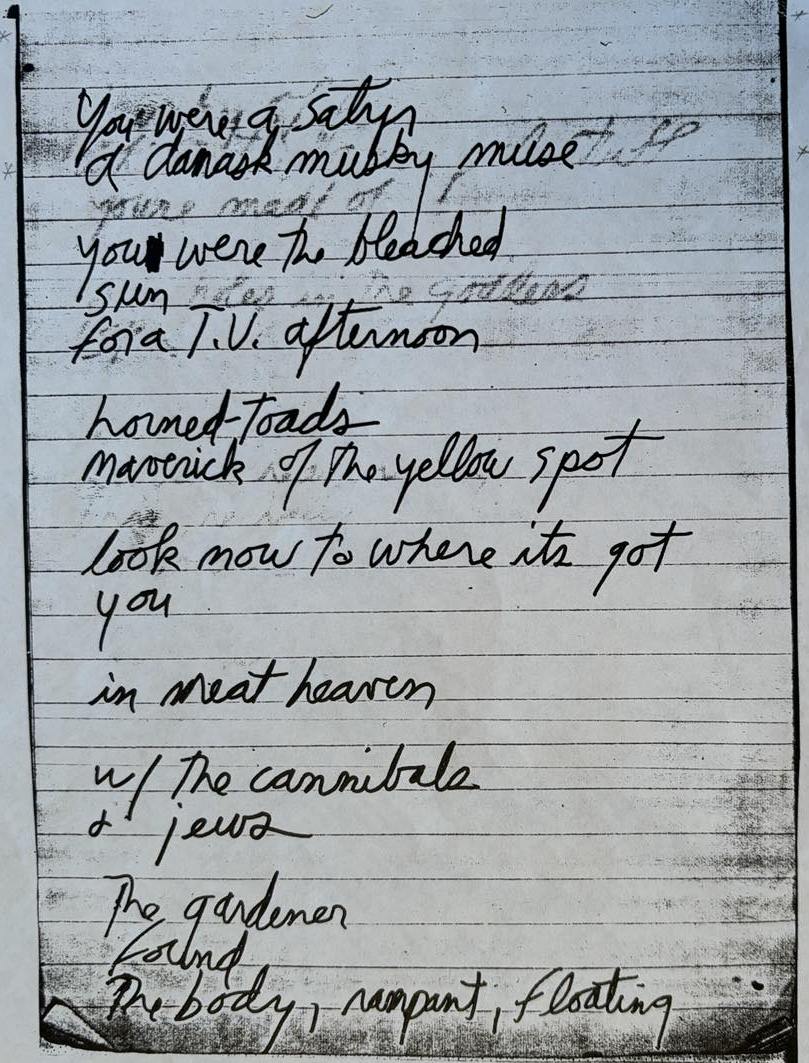 You were a satyr
a damask musky muse
you were the bleached
sun
for a T.V. afternoon
horned-toads
maverick of the yellow spot
look now to where its got
you
in meat heaven
w/ the cannibals
& jews
The gardener
Found
The body, rampant, Floating